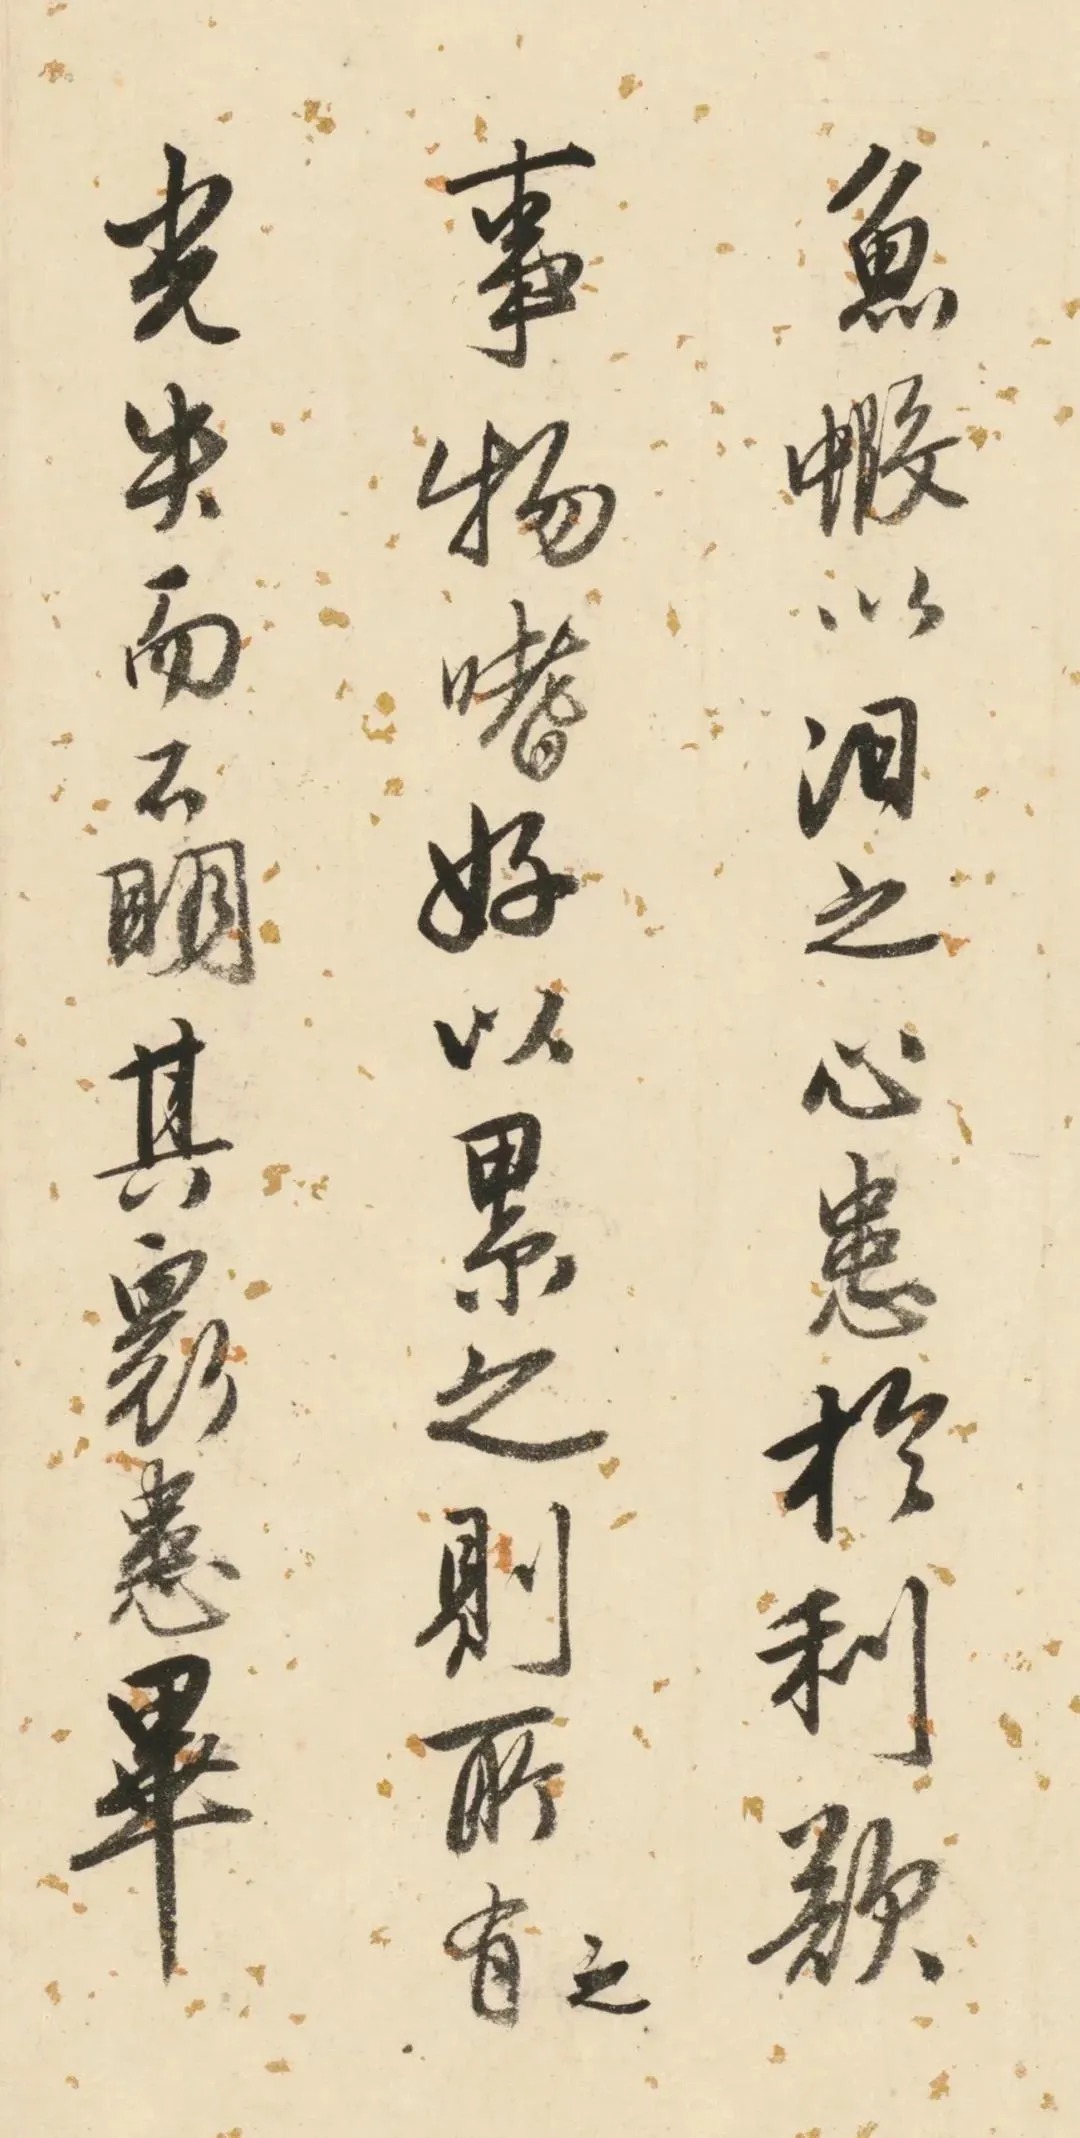 魚蝦以汩之心患於利
事物嗜好以累之則所有之
光失而不明其眾患畢